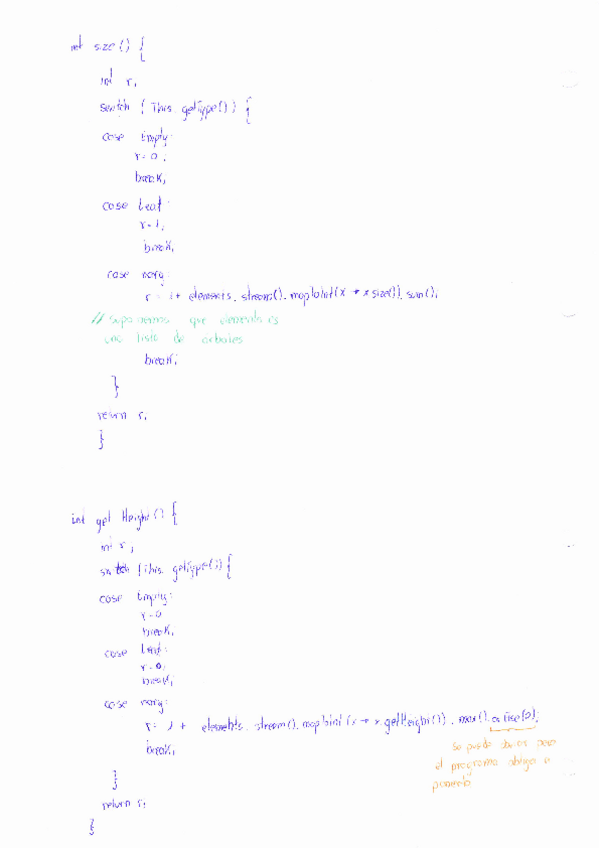 int size() {
int r;
switch (this.getType()) {
case Empty:
r=0;
break;
case Leaf:
r=1;
break;
case narg:
r = 1+ elements.stream().mapToInt(x → x.size()).sum();
// suponemos que elements es
una lista de árboles
break;
}
return r;
}
int getHeight() {
int r;
switch (this.getType()) {
case Empty:
r=0
break;
case Leaf:
r=0;
break;
case narg:
r= 1 + elements.stream().mapToInt(x → x.getHeight()).max().orElse(0);
break;
se puede obviar pero
el programa obliga a
ponerlo
}
return r;
}